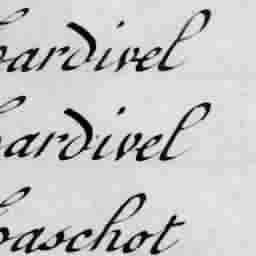 hardivel
hardivel
baschot